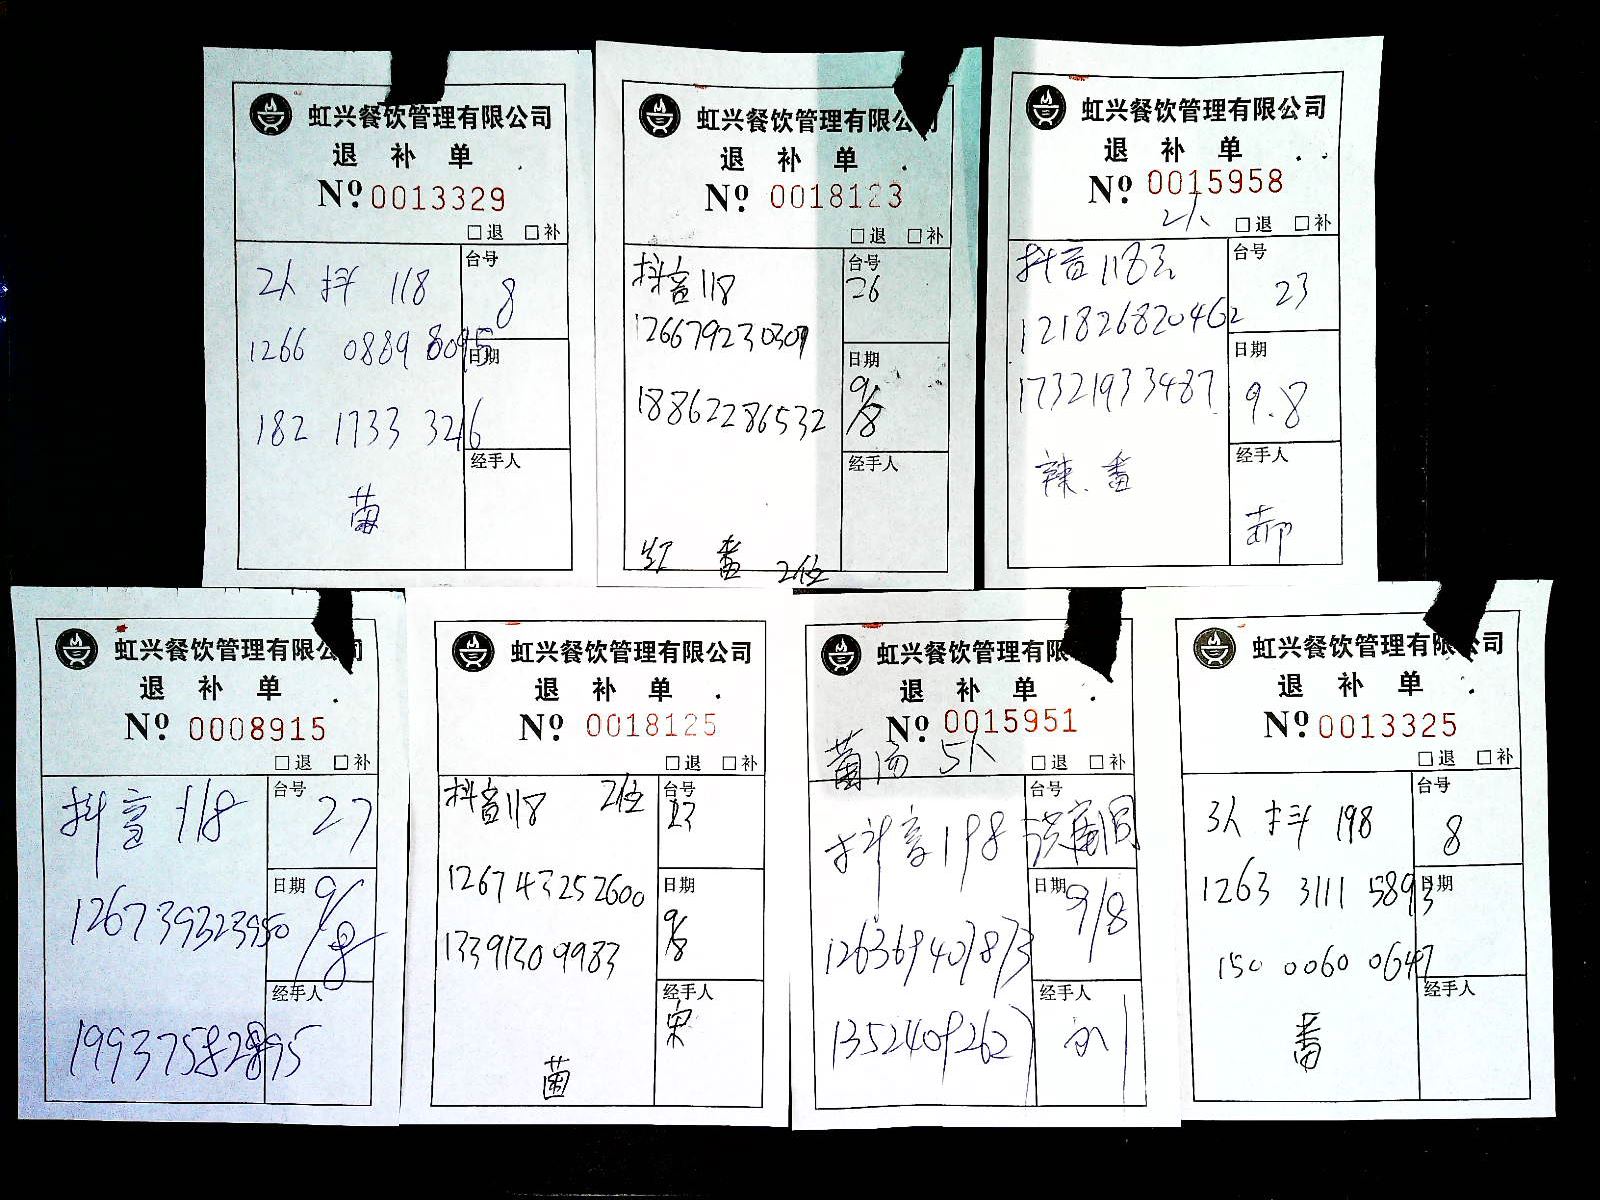 虹兴餐饮管理有限公司
退 补 单
Nº 0013329
□退 □补
台号
2人 抖 118
8
1266 0889 8095
日期
182 1733 3216
经手人
菌
虹兴餐饮管理有限公司
退 补 单
Nº 0018123
□退 □补
抖音118
台号
26
126679230309
日期
9/8
18862286532
经手人
红 番 2位
虹兴餐饮管理有限公司
退 补 单
Nº 0015958
2人
□退 □补
抖音118元
台号
23
121826820462
日期
17321933487
9.8
辣.番
经手人
郝
虹兴餐饮管理有限公司
退 补 单
Nº 0008915
□退 □补
抖音 118
台号
27
126739323950
日期
9/8
经手人
19937582895
虹兴餐饮管理有限公司
退 补 单
Nº 0018125
□退 □补
抖音118 2位
台号
23
126743252600
日期
9/8
13391309983
经手人
宋
菌
虹兴餐饮管理有限公司
退 补 单
Nº 0015951
菌汤 5人
□退 □补
台号
抖音198
日期
9/8
126369407873
经手人
13524099267
虹兴餐饮管理有限公司
退 补 单
Nº 0013325
□退 □补
台号
3人 抖 198
8
1263 3111 5893
日期
150 0060 0647
经手人
番